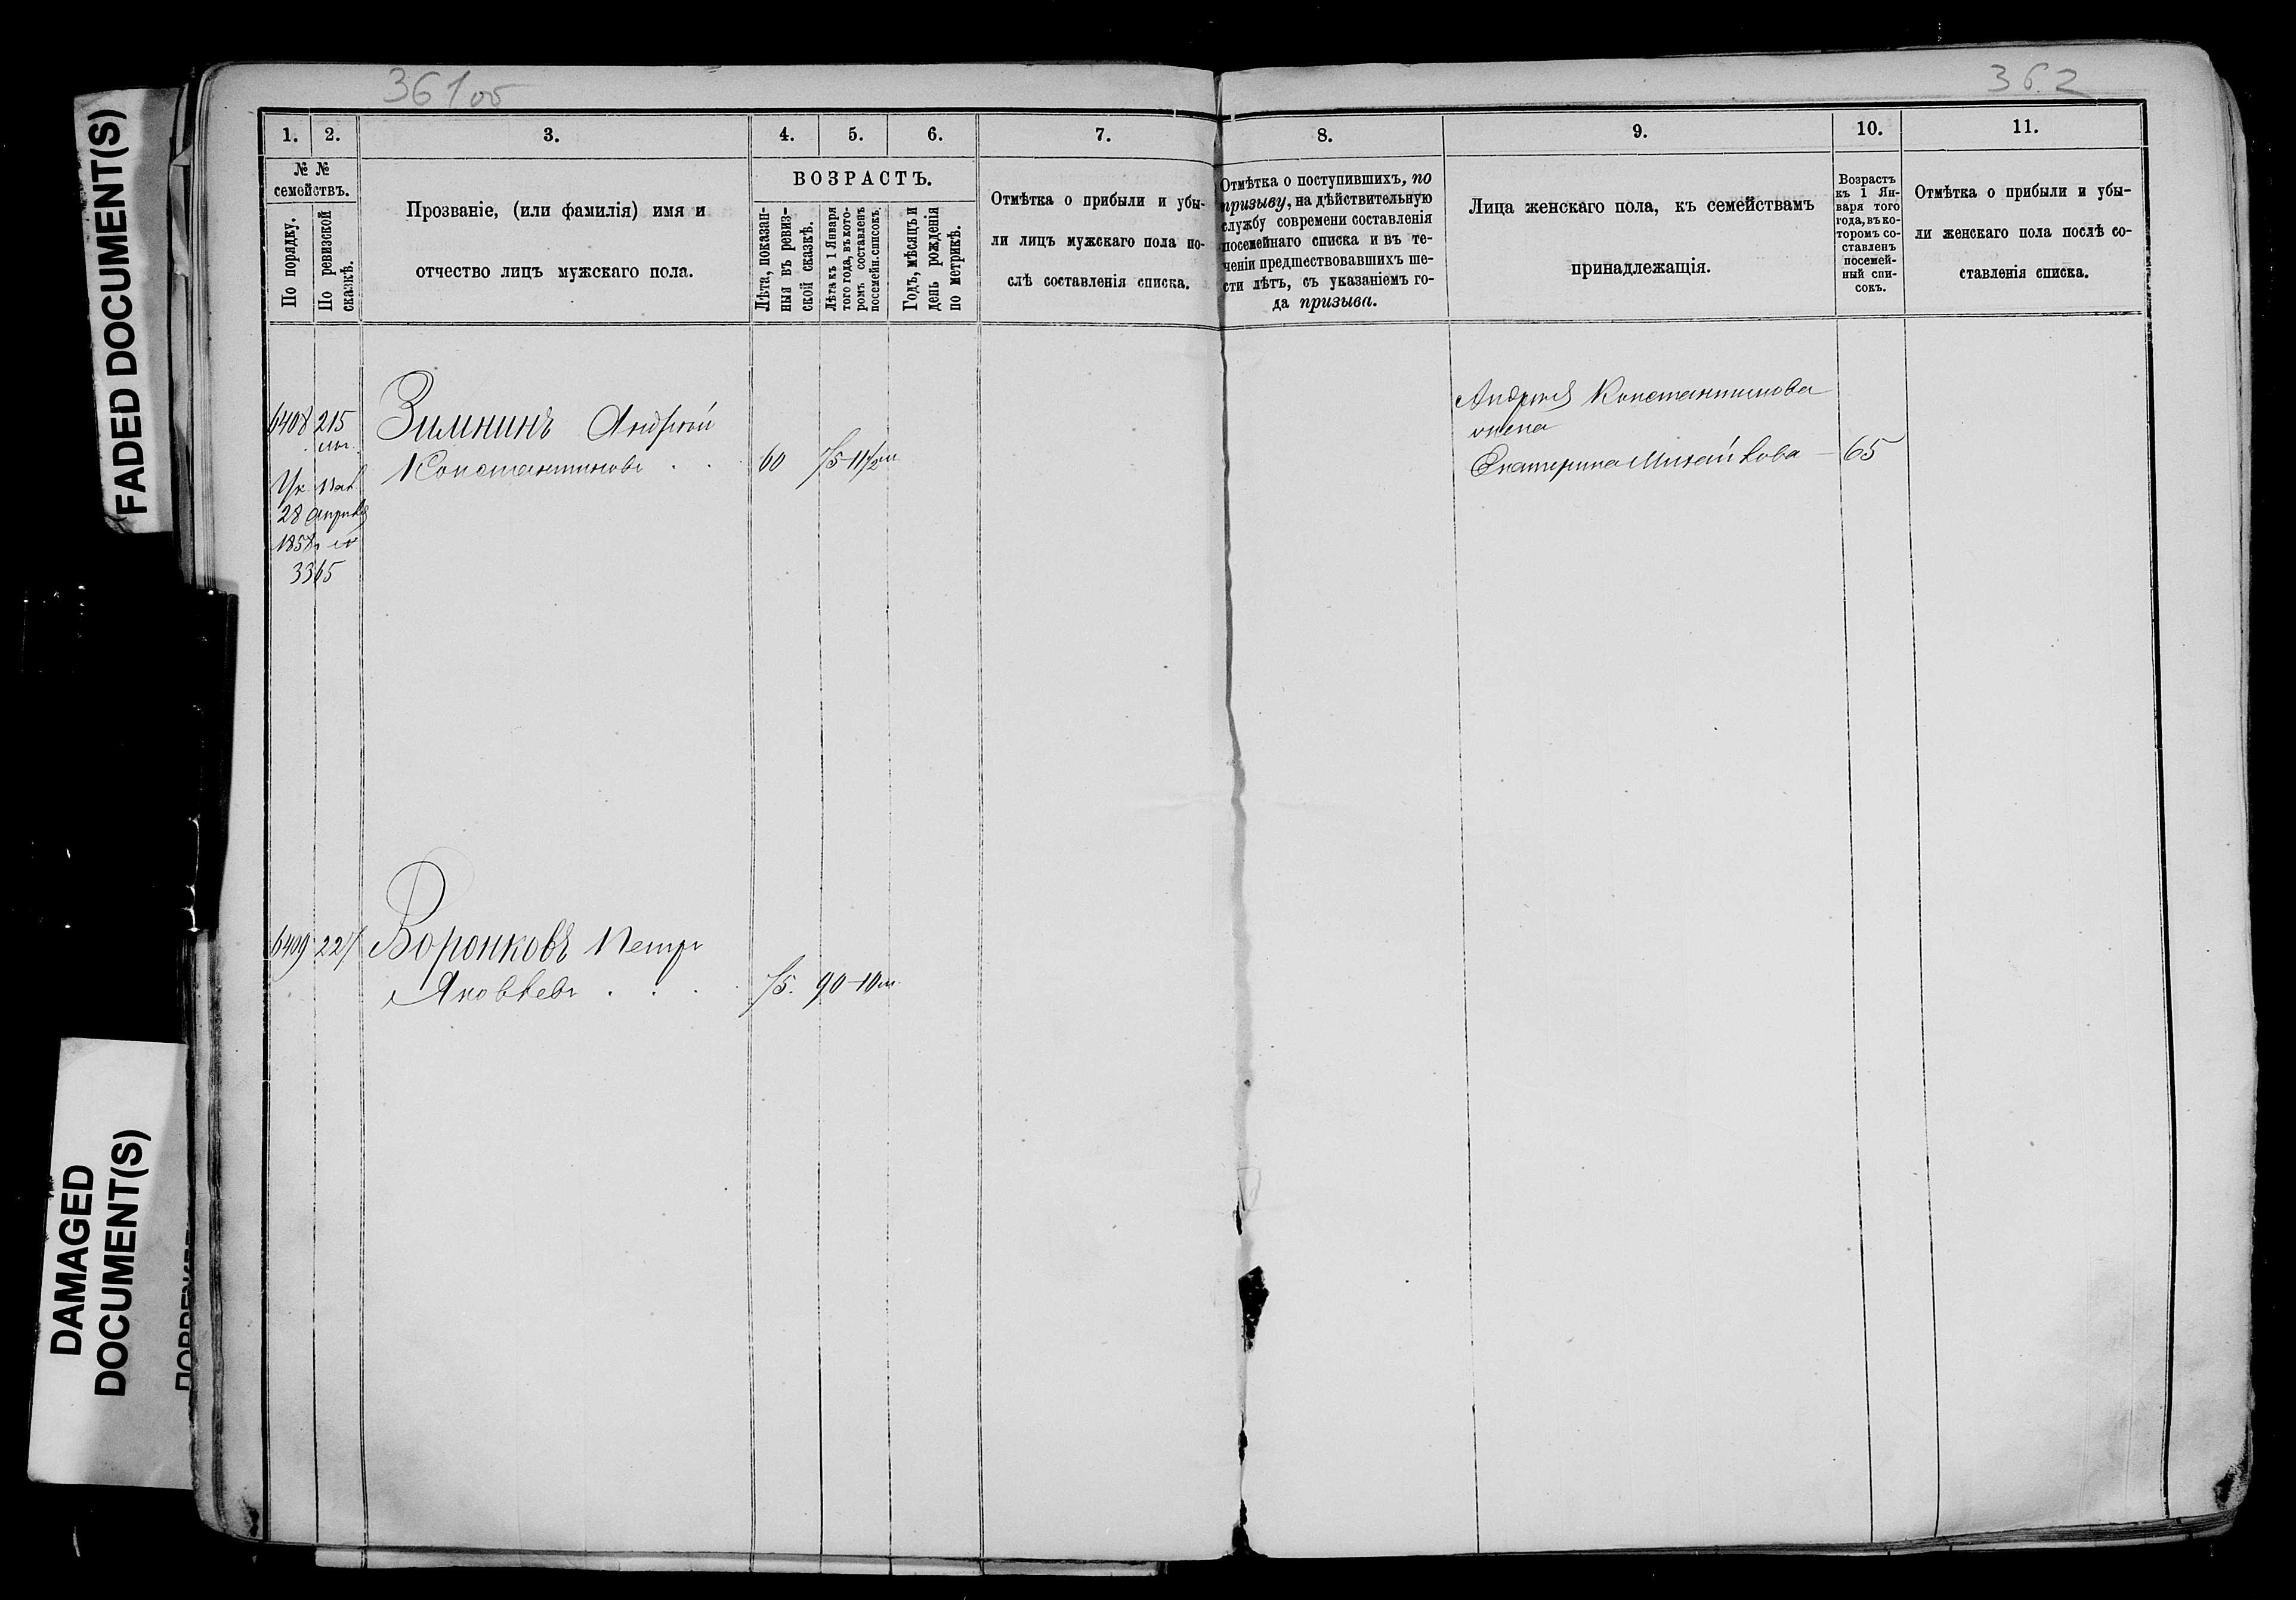 361 об
362
FADED DOCUMENT(S)
DAMAGED
DOCUMENT(S)
1.
2.
3.
4.
5.
6.
7.
8.
9.
10.
11.
№ №
семействъ.
По порядку.
По ревизской
сказкѣ.
Прозваніе, (или фамилія) имя и
отчество лицъ мужскаго пола.
ВОЗРАСТЪ.
Лѣта, показан-
ныя въ ревиз-
ской сказкѣ.
Лѣта къ 1 Января
того года, въ кото-
ромъ составленъ
посемейн. списокъ.
Годъ, мѣсяцъ и
день рожденія
по метрикѣ.
Отмѣтка о прибыли и убы-
ли лицъ мужскаго пола по-
слѣ составленія списка.
Отмѣтка о поступившихъ, по
призыву, на дѣйствительную
службу современи составленія
посемейнаго списка и въ те-
ченіи предшествовавшихъ ше-
сти лѣтъ, съ указаніемъ го-
да призыва.
Лица женскаго пола, къ семействамъ
принадлежащія.
Возрастъ
къ 1 Ян-
варя того
года, въ ко-
торомъ со-
ставленъ
посемей-
ный спи-
сокъ.
Отмѣтка о прибыли и убы-
ли женскаго пола послѣ со-
ставленія списка.
6408 215 Зимнинъ Андрей
Константиновъ . . 60 75-11½ м
28 Апрѣля
1858 г
3365
Андрея Константинова
жена
Екатерина Михайлова — 65
6409 227 Воронковъ Петръ
Яковлевъ . . . 75. 90-10 м.